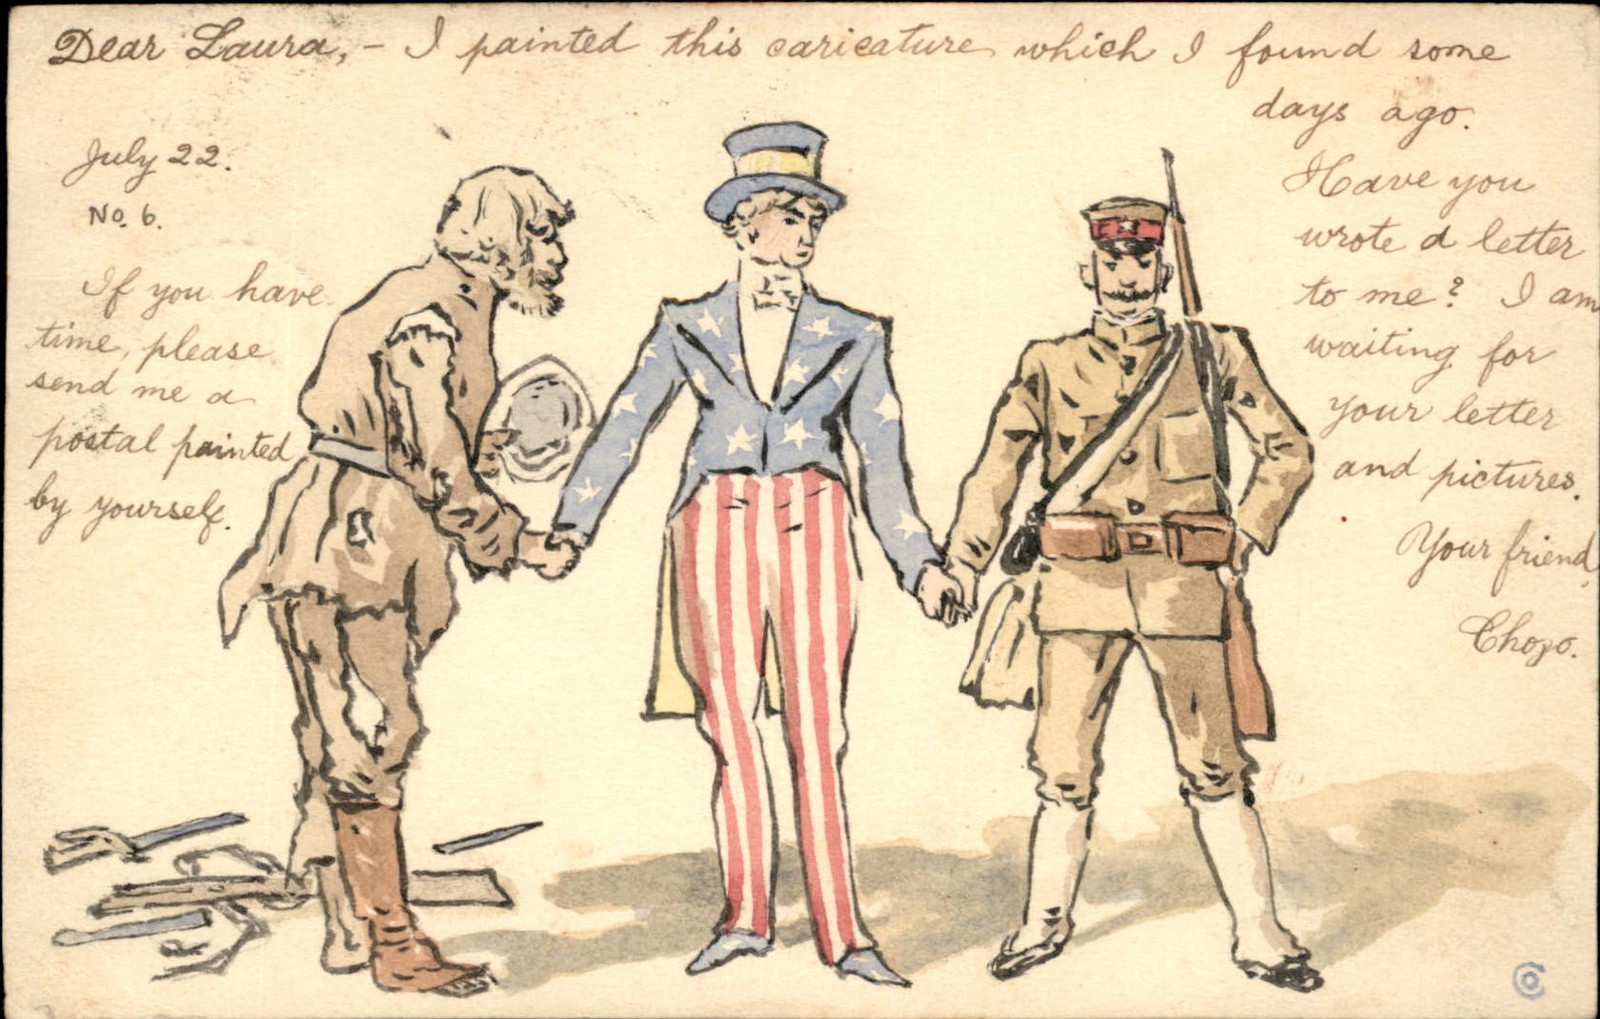 Dear Laura, – I painted this caricature which I found some
days ago.
July 22.
No. 6.
Have you
wrote a letter
to me? I am
waiting for
your letter
and pictures.
Your friend,
Chozo.
If you have
time, please
send me a
postal painted
by yourself.